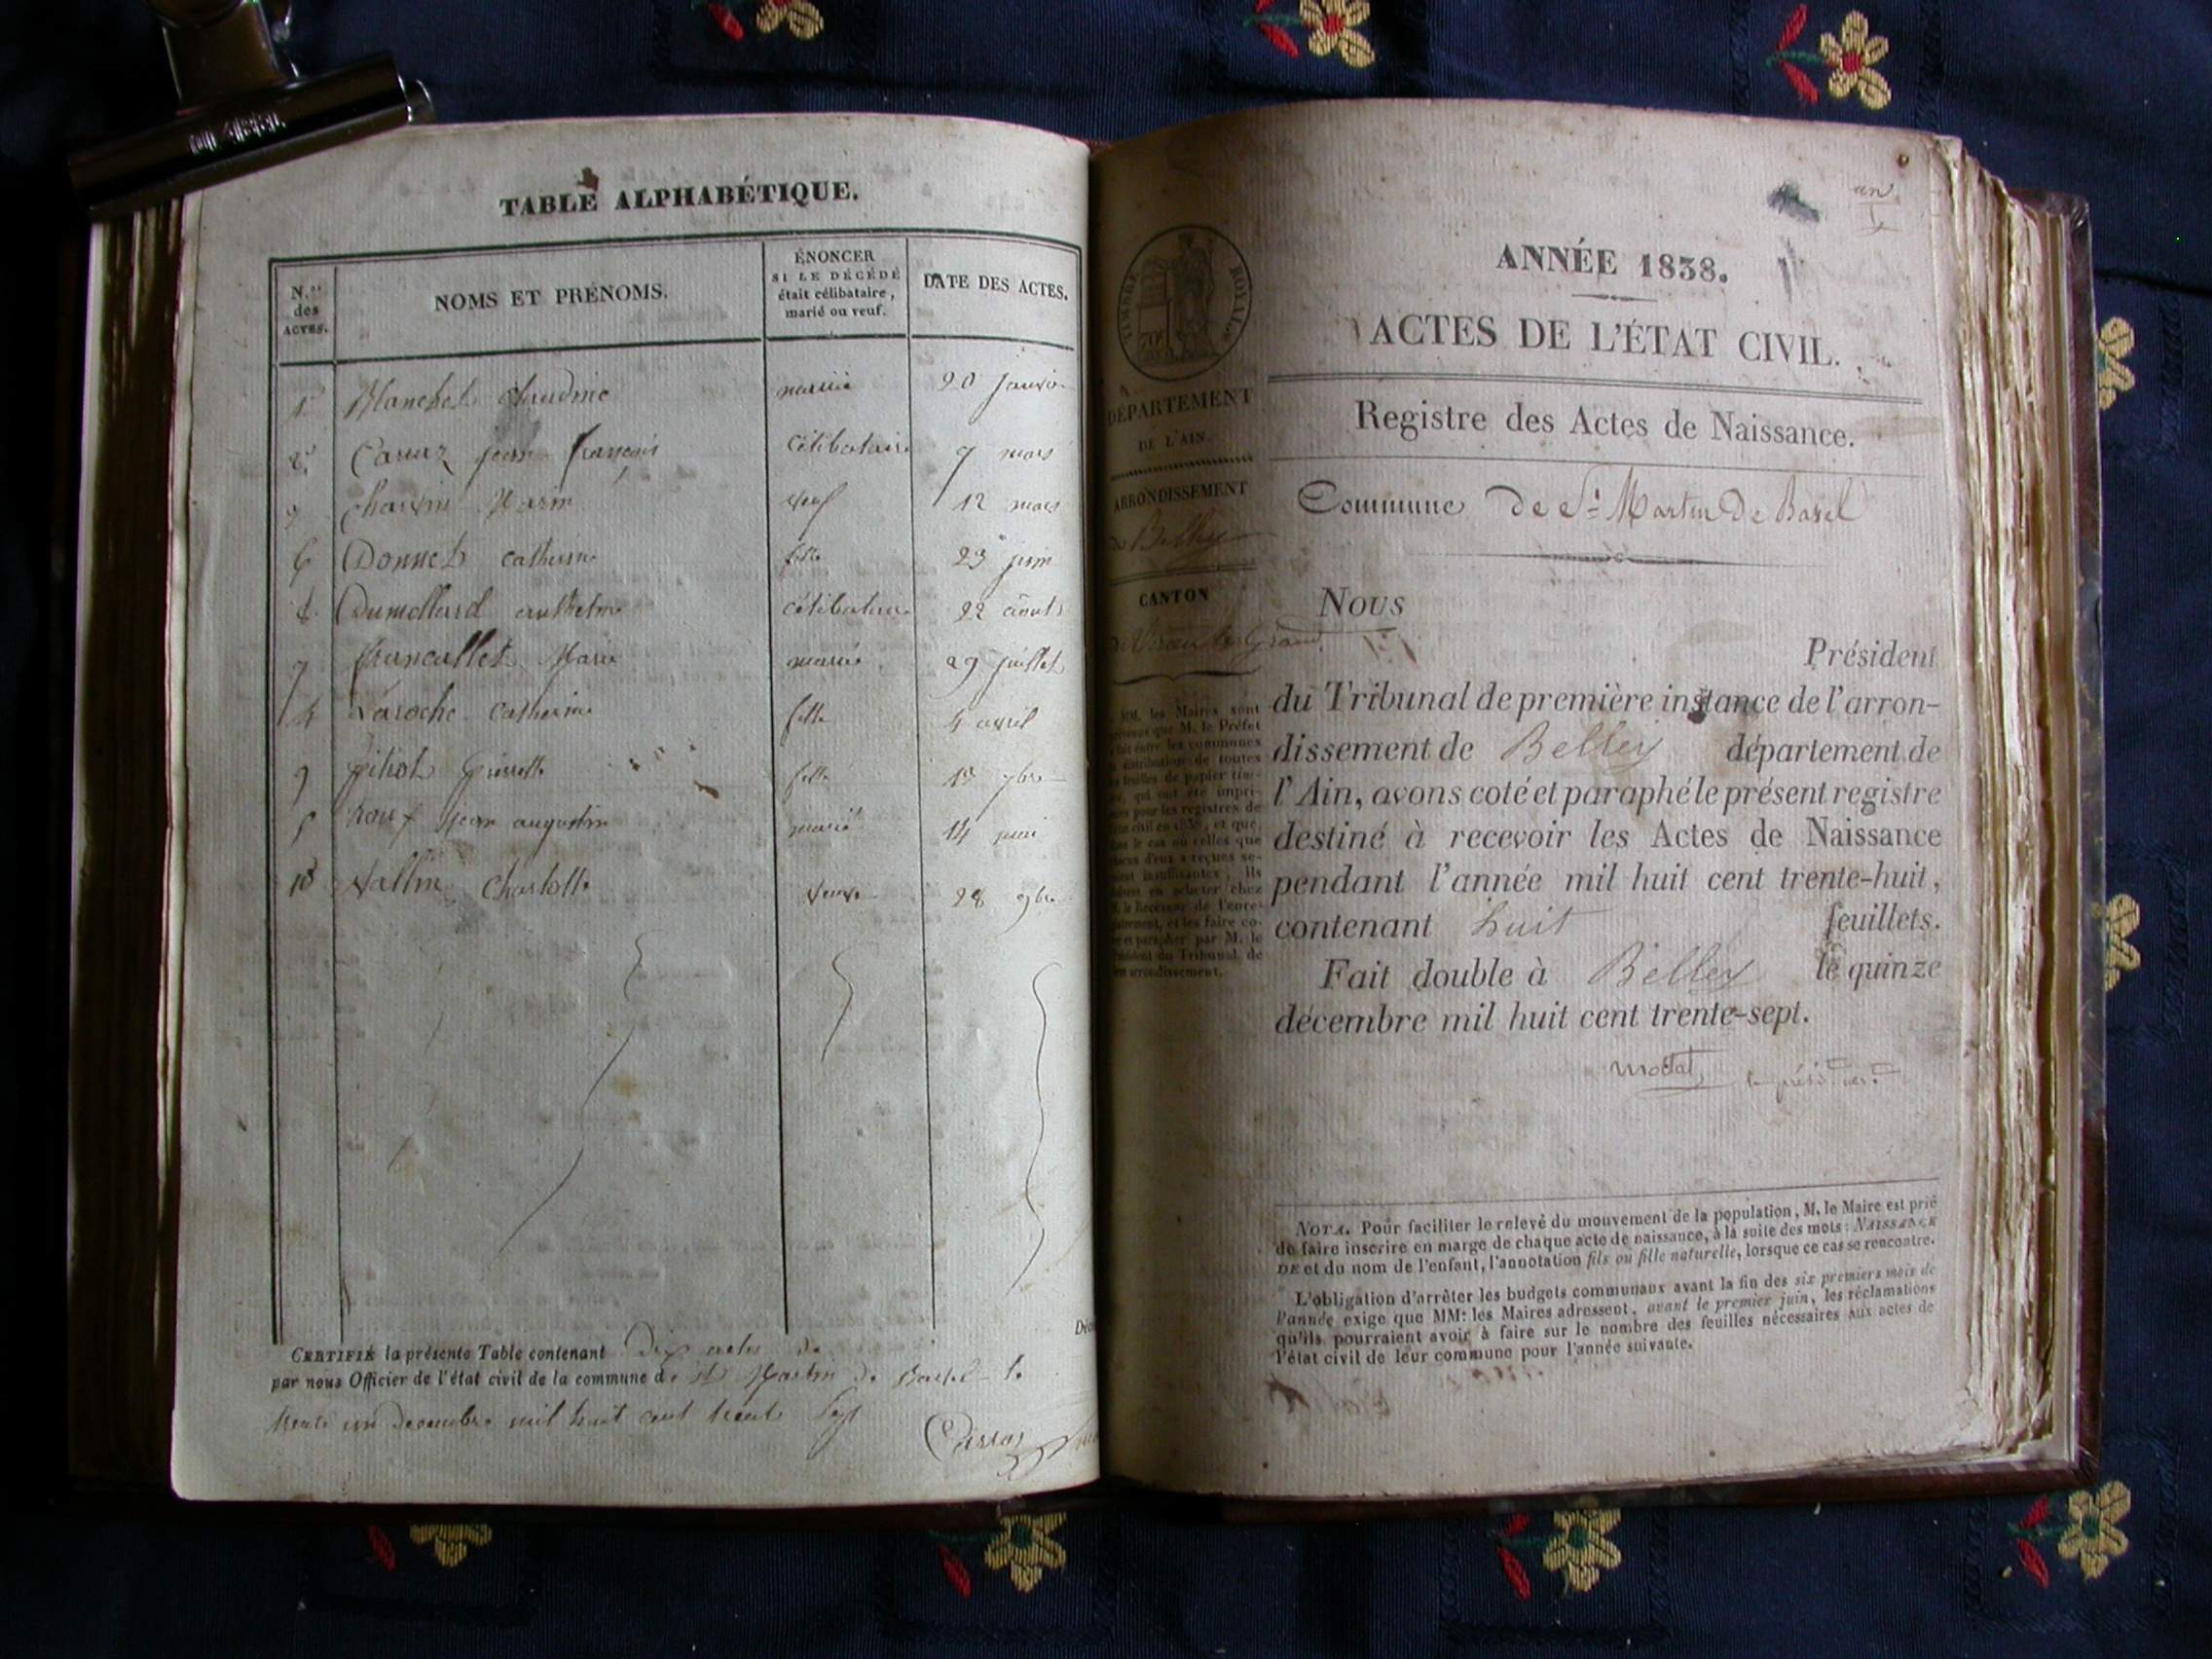 TABLE ALPHABÉTIQUE.
N.os des ACTES.
NOMS ET PRÉNOMS.
ÉNONCER
SI LE DÉCÉDÉ
était célibataire,
marié ou veuf.
DATE DES ACTES.
1 Blanchet Claudine mariée 20 janvier
Caruz jean françois célibataire 9 mars
Marin veuf 12 mars
6 Donnet catherine fille 23 juin
Dumollard anthelme célibataire 22 août
7 francallet Marie mariée 29 juillet
Laroche catherine fille 4 avril
9 pierrette fille 9bre
5 Roux jean augustin marié 14 juin
10 Vallin Charlotte veuve 28 9bre
CERTIFIÉ la présente Table contenant Dix actes
par nous Officier de l'état civil de la commune de St Martin de Bavel le
trente un Decembre mil huit cent trente sept
TIMBRE ROYAL
DÉPARTEMENT
DE L'AIN.
ARRONDISSEMENT
de Belley
CANTON
MM. les Maires sont
que M. le Préfet
fait entre les communes
distribution de toutes
feuilles de papier tim-
qui ont été impri-
pour les registres de
et que,
dans le cas où celles que
chacun d'eux a reçues se-
raient insuffisantes, ils
chez
le Receveur de l'enre-
gistrement, et les faire co-
ter et parapher par M. le
Président du Tribunal de
leur arrondissement.
un
ANNÉE 1838.
ACTES DE L'ÉTAT CIVIL.
Registre des Actes de Naissance.
Commune De St Martin De Bavel
Nous
Président
du Tribunal de première instance de l'arron-
dissement de Belley département de
l'Ain, avons coté et paraphé le présent registre
destiné à recevoir les Actes de Naissance
pendant l'année mil huit cent trente-huit,
contenant huit feuillets.
Fait double à Belley le quinze
décembre mil huit cent trente-sept.
NOTA. Pour faciliter le relevé du mouvement de la population, M. le Maire est prié
de faire inscrire en marge de chaque acte de naissance, à la suite des mots: NAISSANCE
DE et du nom de l'enfant, l'annotation fils ou fille naturelle, lorsque ce cas se rencontre.
L'obligation d'arrêter les budgets communaux avant la fin des six premiers mois de
l'année exige que MM. les Maires adressent, avant le premier juin, les réclamations
qu'ils pourraient avoir à faire sur le nombre des feuilles nécessaires aux actes de
l'état civil de leur commune pour l'année suivante.